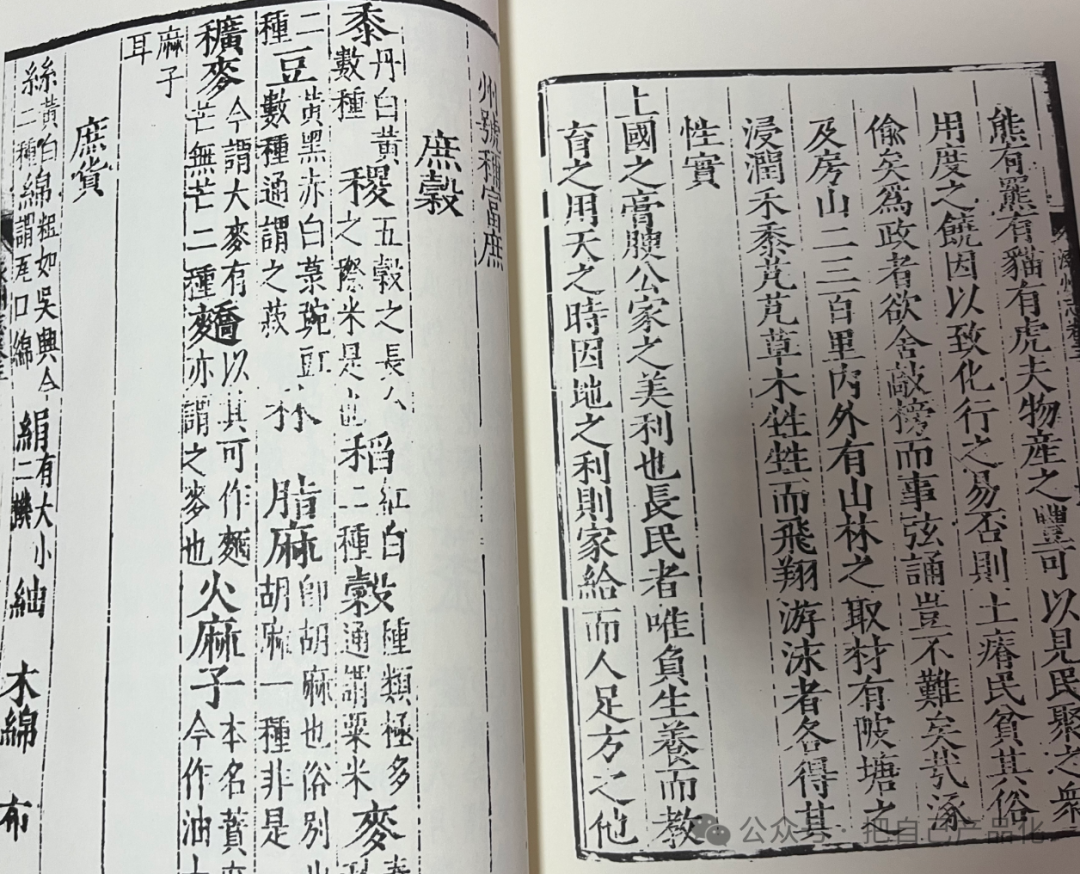 熊有羆有貓有虎夫物産之豐可以見民聚之衆
用度之饒因以致化行之易否則土瘠民貧其俗
偷矣爲政者欲舍敲榜而事弦誦豈不難矣哉涿
及房山二三百里内外有山林之取材有陂塘之
浸潤禾黍芃芃草木甡甡而飛翔游沫者各得其
性實
上國之膏腴公家之美利也長民者唯負生養而教
育之用天之時因地之利則家給而人足方之他
州號稱富庶
庶穀
黍丹白黃數種 稷五穀之長之際米是也 稻紅白二種 穀種類極多通謂粟米 麥
二種 豆黃黑赤白菉豌豇數種通謂之菽 脂麻即胡麻也俗別胡麻一種非是
穬麥今謂大麥有芒無芒二種 麱以其可作麵亦謂之麥也 火麻子本名蕡今作油
麻子耳
庶貨
絲黃白二種 綿粗如吳興今綿謂 絹有大小二機 紬 木綿 布
公众号 把自己产品化